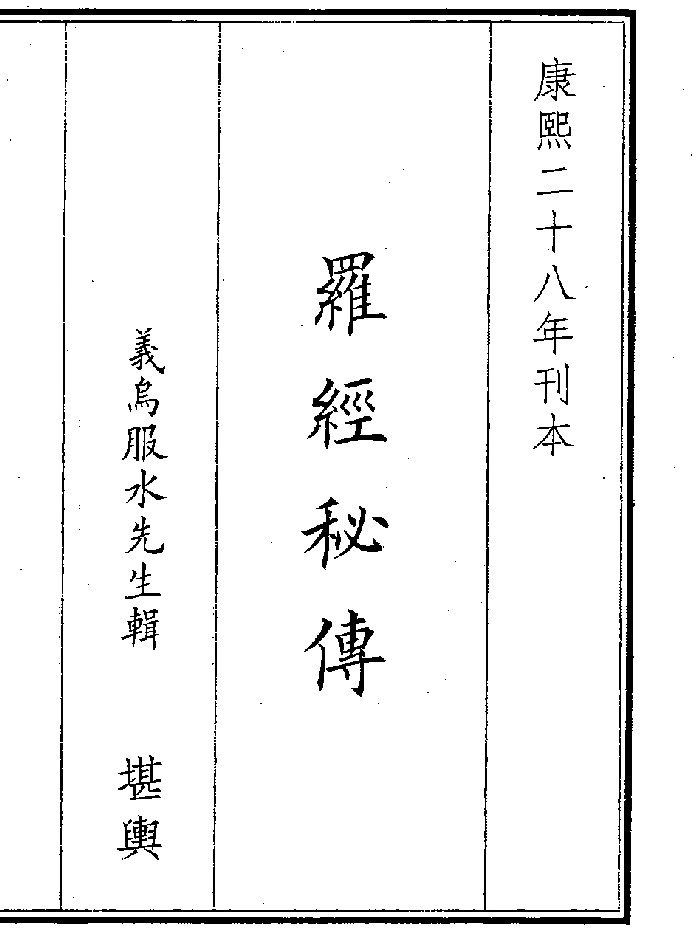 康熙二十八年刊本
羅經秘傳
義烏服水先生輯 堪輿